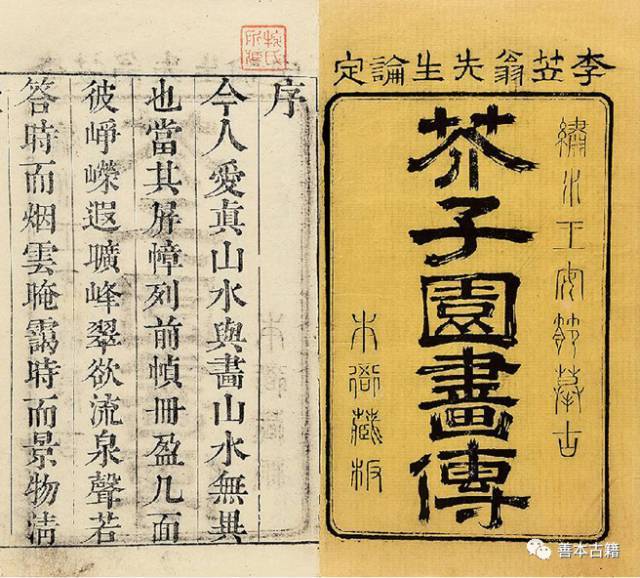 李笠翁先生論定
繡水王安節摹古
芥子園畫傳
本衙藏板
序
今人愛真山水與畫山水無異
也當其屏幛列前幀冊盈几面
彼崢嶸遐曠峰翠欲流泉聲若
答時而烟雲晻靄時而景物清
善本古籍